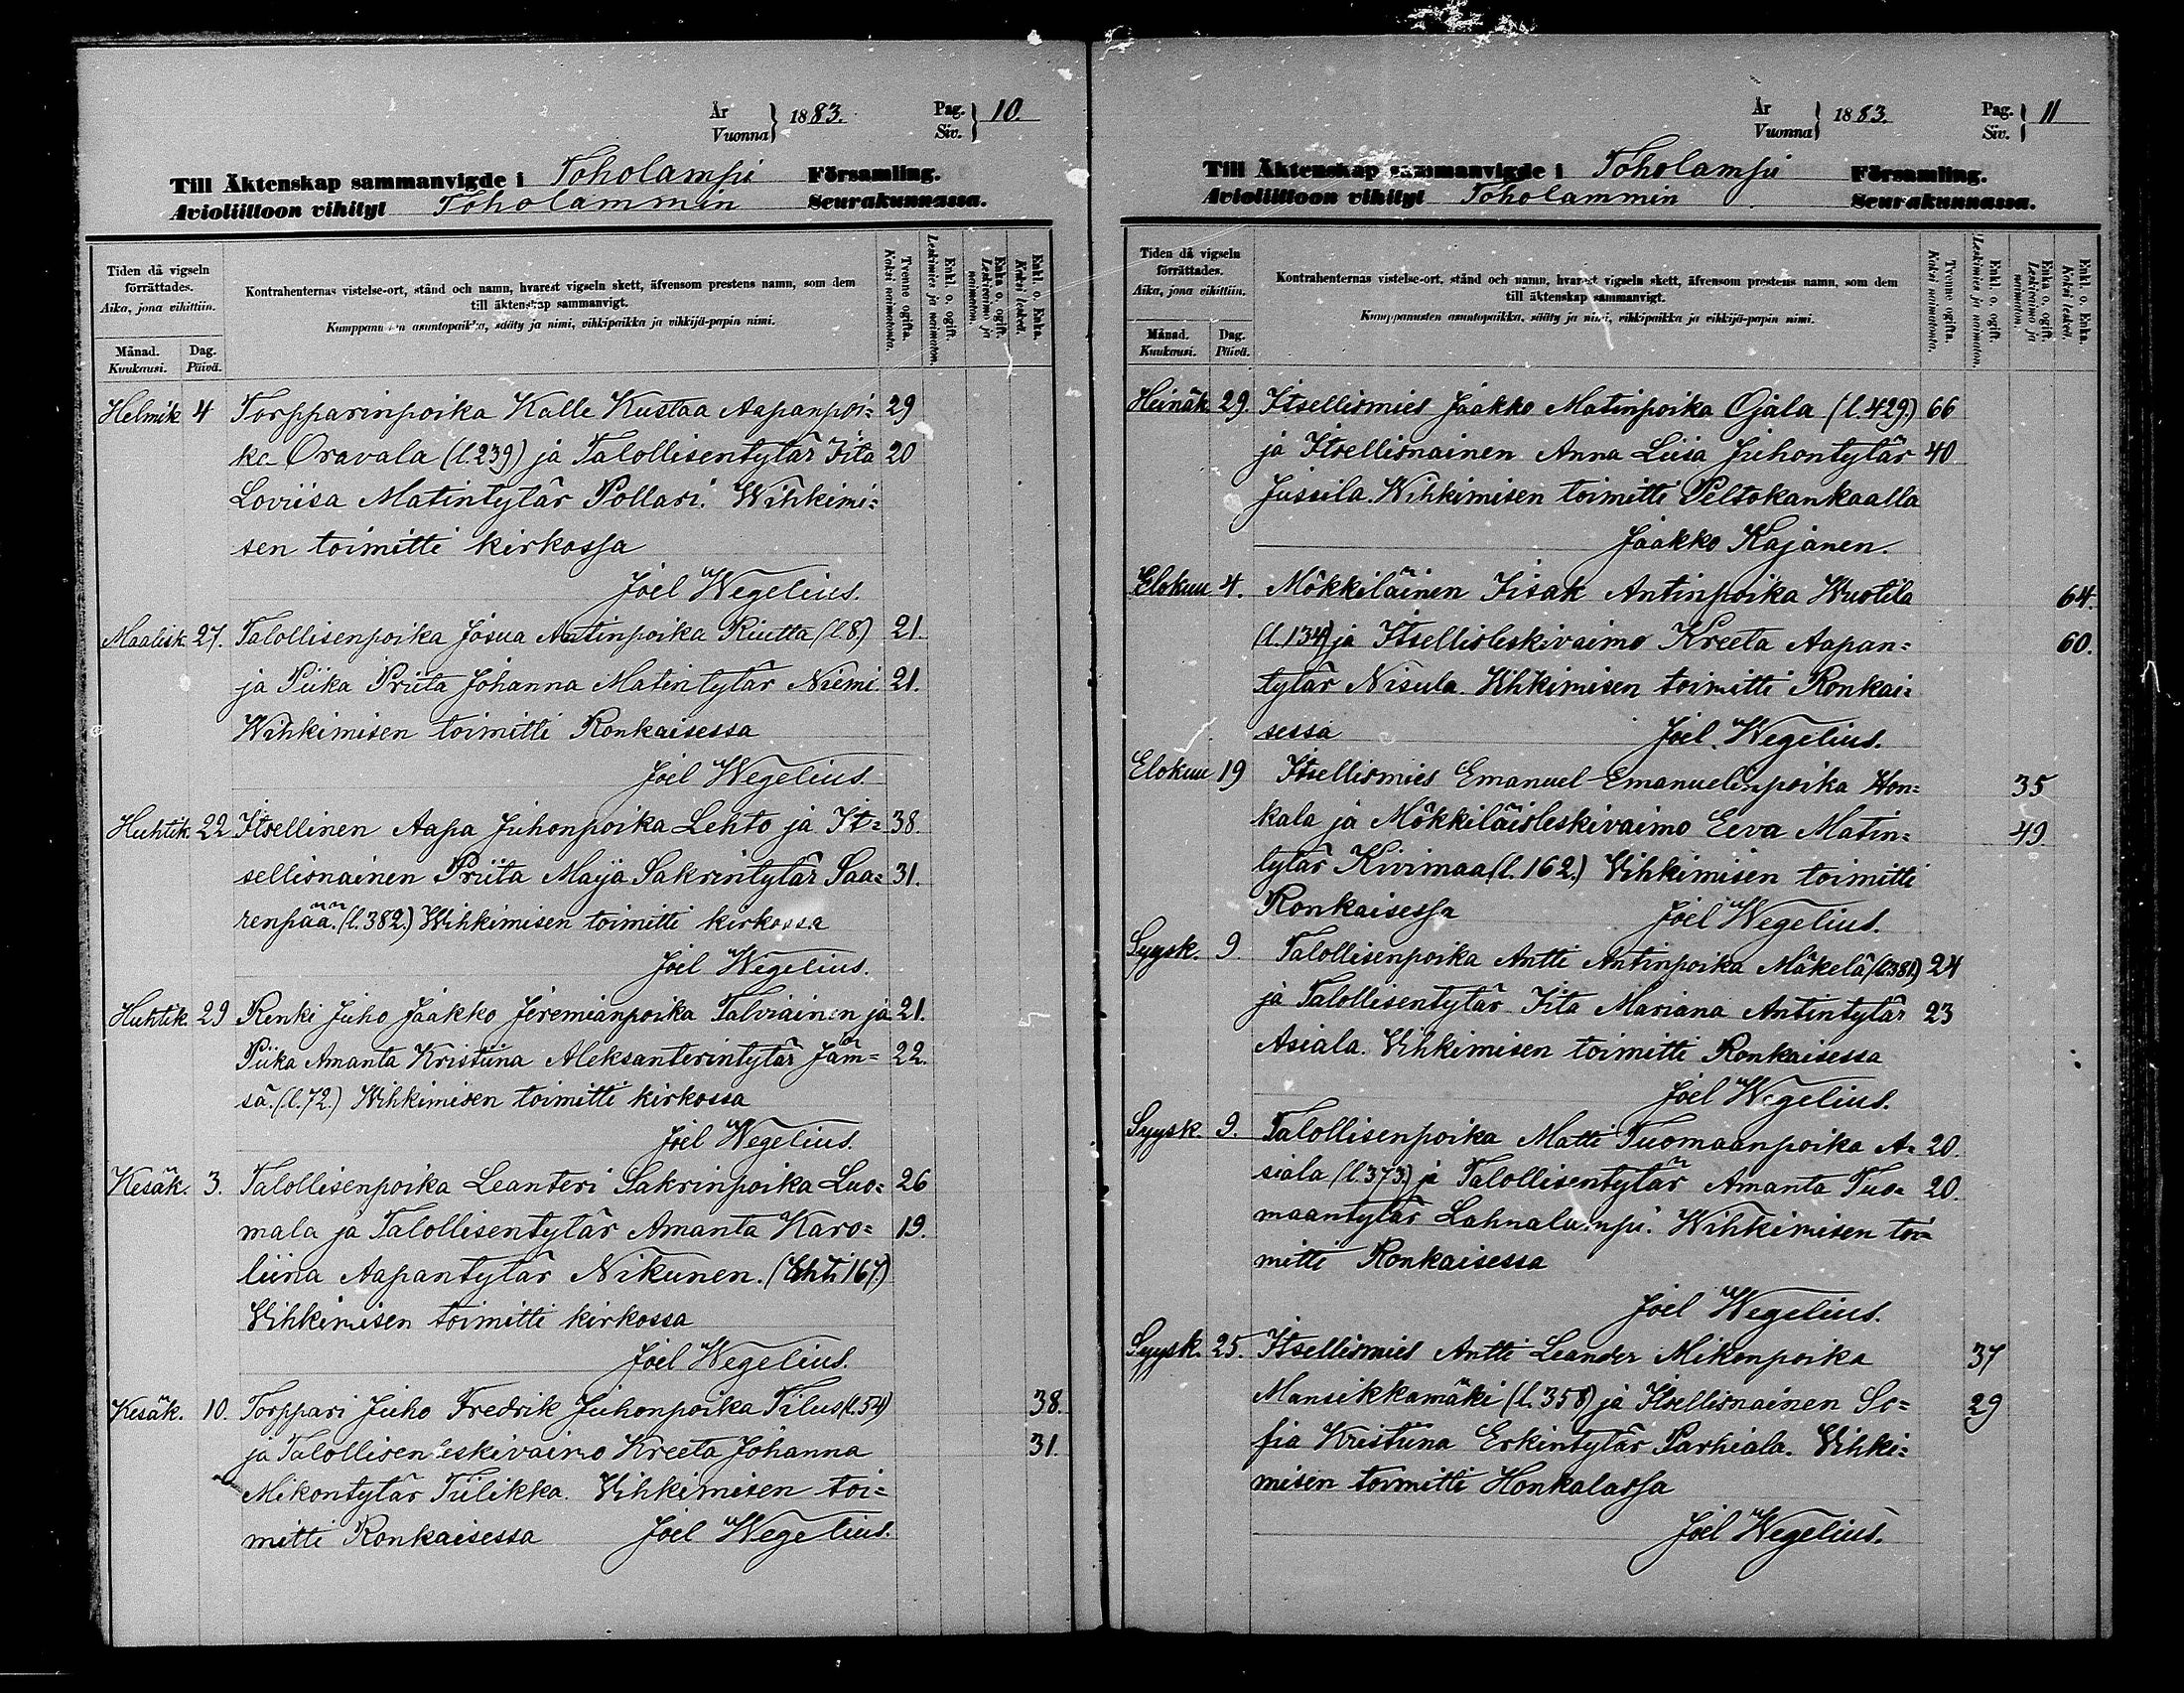 År
Vuonna } 1883.
Pag.
Siv. } 10.
Till Äktenskap sammanvigde i Toholampi Församling.
Avioliittoon vihityt Toholammin Seurakunnassa.
Tiden då vigseln
förrättades.
Aika, jona vihittiin.
Månad.
Kuukausi.
Dag.
Päivä.
Kontrahenternas vistelse-ort, stånd och namn, hvarest vigseln skett, äfvensom prestens namn, som dem
till äktenskap sammanvigt.
Kumppanusten asuntopaikka, sääty ja nimi, vihkipaikka ja vihkijä-papin nimi.
Tvenne ogifta.
Kaksi naimatonta.
Enkl. o. ogift.
Leskimies ja naimaton.
Enka o. ogift.
Leskivaimo ja
naimaton.
Enkl. o. Enka.
Kaksi leskeä.
Helmik 4 Torpparinpoika Kalle Kustaa Aapanpoi= 29
ka Oravala (l.239) ja Talollisentytär Iita 20
Loviisa Matintytär Pollari. Wihkimi=
sen toimitti kirkossa
Joel Wegelius.
Maalisk 27. Talollisenpoika Josua Antinpoika Riutta (l.8.) 21.
ja Piika Priita Johanna Matintytär Niemi. 21.
Wihkimisen toimitti Ronkaisessa
Joel Wegelius.
Huhtik 22 Itsellinen Aapa Juhonpoika Lehto ja It= 38.
sellisnainen Priita Maija Sakrintytär Saa= 31.
renpää. (l.382.) Wihkimisen toimitti kirkossa
Joel Wegelius.
Huhtik. 29 Renki Juho Jaakko Jeremianpoika Talviainen ja 21.
Piika Amanta Kristiina Aleksanterintytär Jäm= 22.
sä. (l.72.) Wihkimisen toimitti kirkossa
Joel Wegelius.
Kesäk. 3. Talollisenpoika Leanteri Sakrinpoika Luo= 26
mala ja Talollisentytär Amanta Karo= 19.
liina Aapantytär Nikunen. (167.)
Vihkimisen toimitti kirkossa
Joel Wegelius.
Kesäk. 10. Torppari Juho Fredrik Juhonpoika Tilus (l.54) 38.
ja Talollisenleskivaimo Kreeta Johanna 31.
Mikontytär Tiilikka. Vihkimisen toi=
mitti Ronkaisessa Joel Wegelius.
År
Vuonna } 1883.
Pag.
Siv. } 11
Till Äktenskap sammanvigde i Toholampi Församling.
Avioliittoon vihityt Toholammin Seurakunnassa.
Tiden då vigseln
förrättades.
Aika, jona vihittiin.
Månad.
Kuukausi.
Dag.
Päivä.
Kontrahenternas vistelse-ort, stånd och namn, hvarest vigseln skett, äfvensom prestens namn, som dem
till äktenskap sammanvigt.
Kumppanusten asuntopaikka, sääty ja nimi, vihkipaikka ja vihkijä-papin nimi.
Tvenne ogifta.
Kaksi naimatonta.
Enkl. o. ogift.
Leskimies ja naimaton.
Enka o. ogift.
Leskivaimo ja
naimaton.
Enkl. o. Enka.
Kaksi leskeä.
Heinäk. 29. Itsellismies Jaakko Matinpoika Ojala (l.429.) 66
ja Itsellisnainen Anna Liisa Juhontytär 40
Jussila. Wihkimisen toimitti Peltokankaalla
Jaakko Kajanen.
Elokuu 4. Mökkiläinen Iisak Antinpoika Wuotila 64.
(l.134) ja Itsellisleskivaimo Kreeta Aapan= 60.
tytär Nisula. Vihkimisen toimitti Ronkai=
sessa Joel Wegelius.
Elokuu 19 Itsellismies Emanuel Emanuelinpoika Hon= 35
kala ja Mökkiläisleskivaimo Eeva Matin= 49.
tytär Kivimaa (l.162.) Vihkimisen toimitti
Ronkaisessa Joel Wegelius.
Syysk. 9. Talollisenpoika Antti Antinpoika Mäkelä (l.381.) 24
ja Talollisentytär Iita Mariana Antintytär 23
Asiala. Vihkimisen toimitti Ronkaisessa
Joel Wegelius.
Syysk. 9. Talollisenpoika Matti Tuomaanpoika A= 20.
siala (l.373.) ja Talollisentytär Amanta Tuo= 20.
maantytär Lahnalampi. Wihkimisen toi=
mitti Ronkaisessa
Joel Wegelius.
Syysk. 25. Itsellismies Antti Leander Mikonpoika 37
Mansikkamäki (l.358) ja Itsellisnainen So= 29
fia Kristiina Erkintytär Parhiala. Vihki=
misen toimitti Honkalassa
Joel Wegelius.